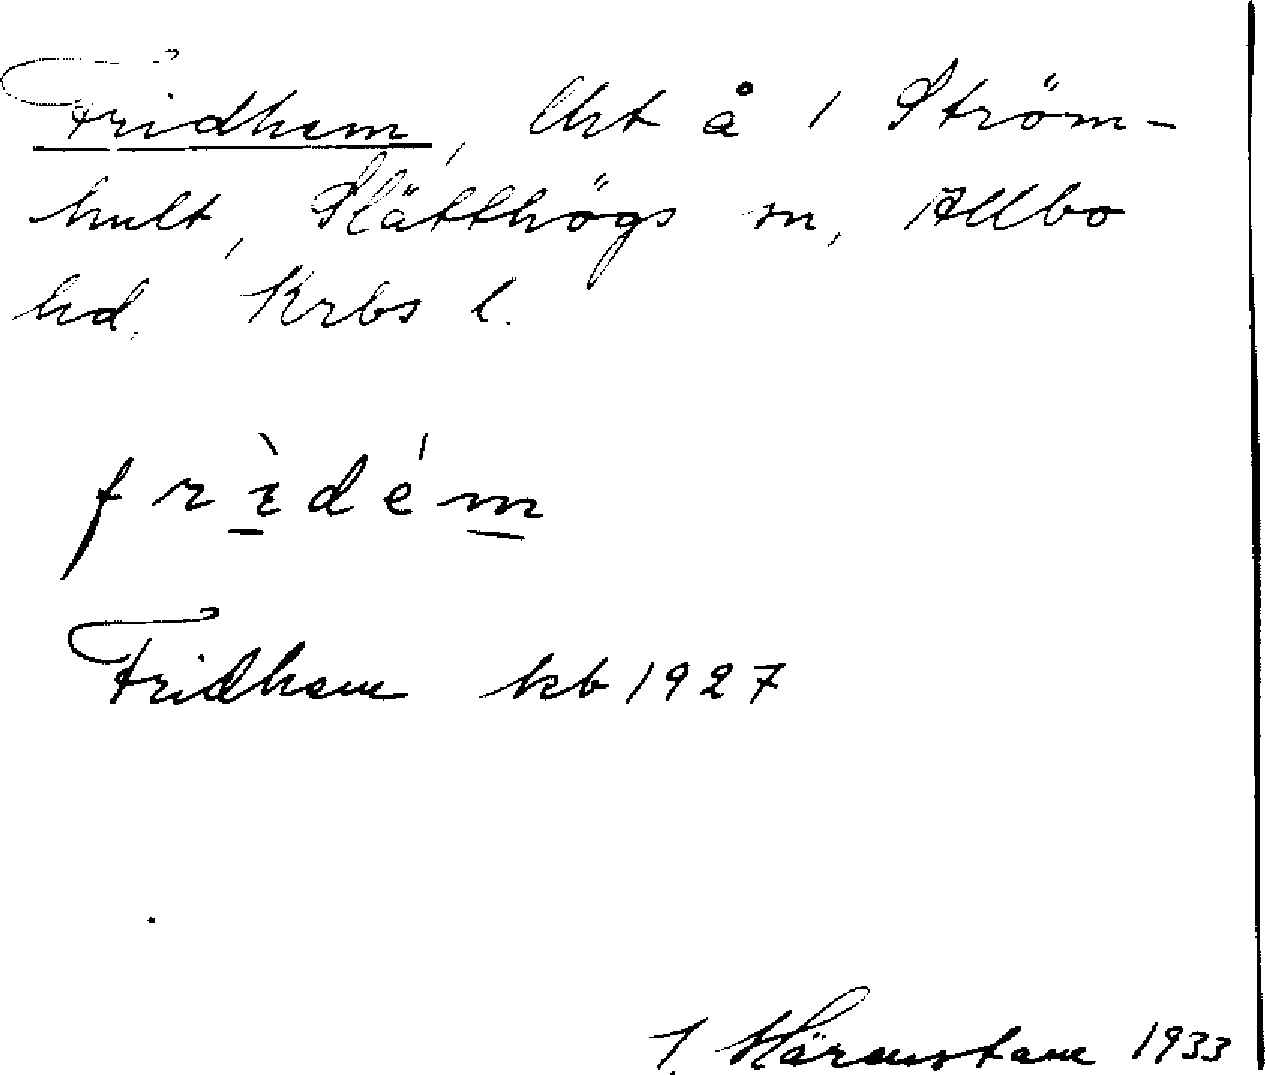 Fridhem, lht å 1 Ström-
hult, Slätthögs sn, Allbo
hd, Krbs l.
frìdém
Fridhem kb 1927
1933